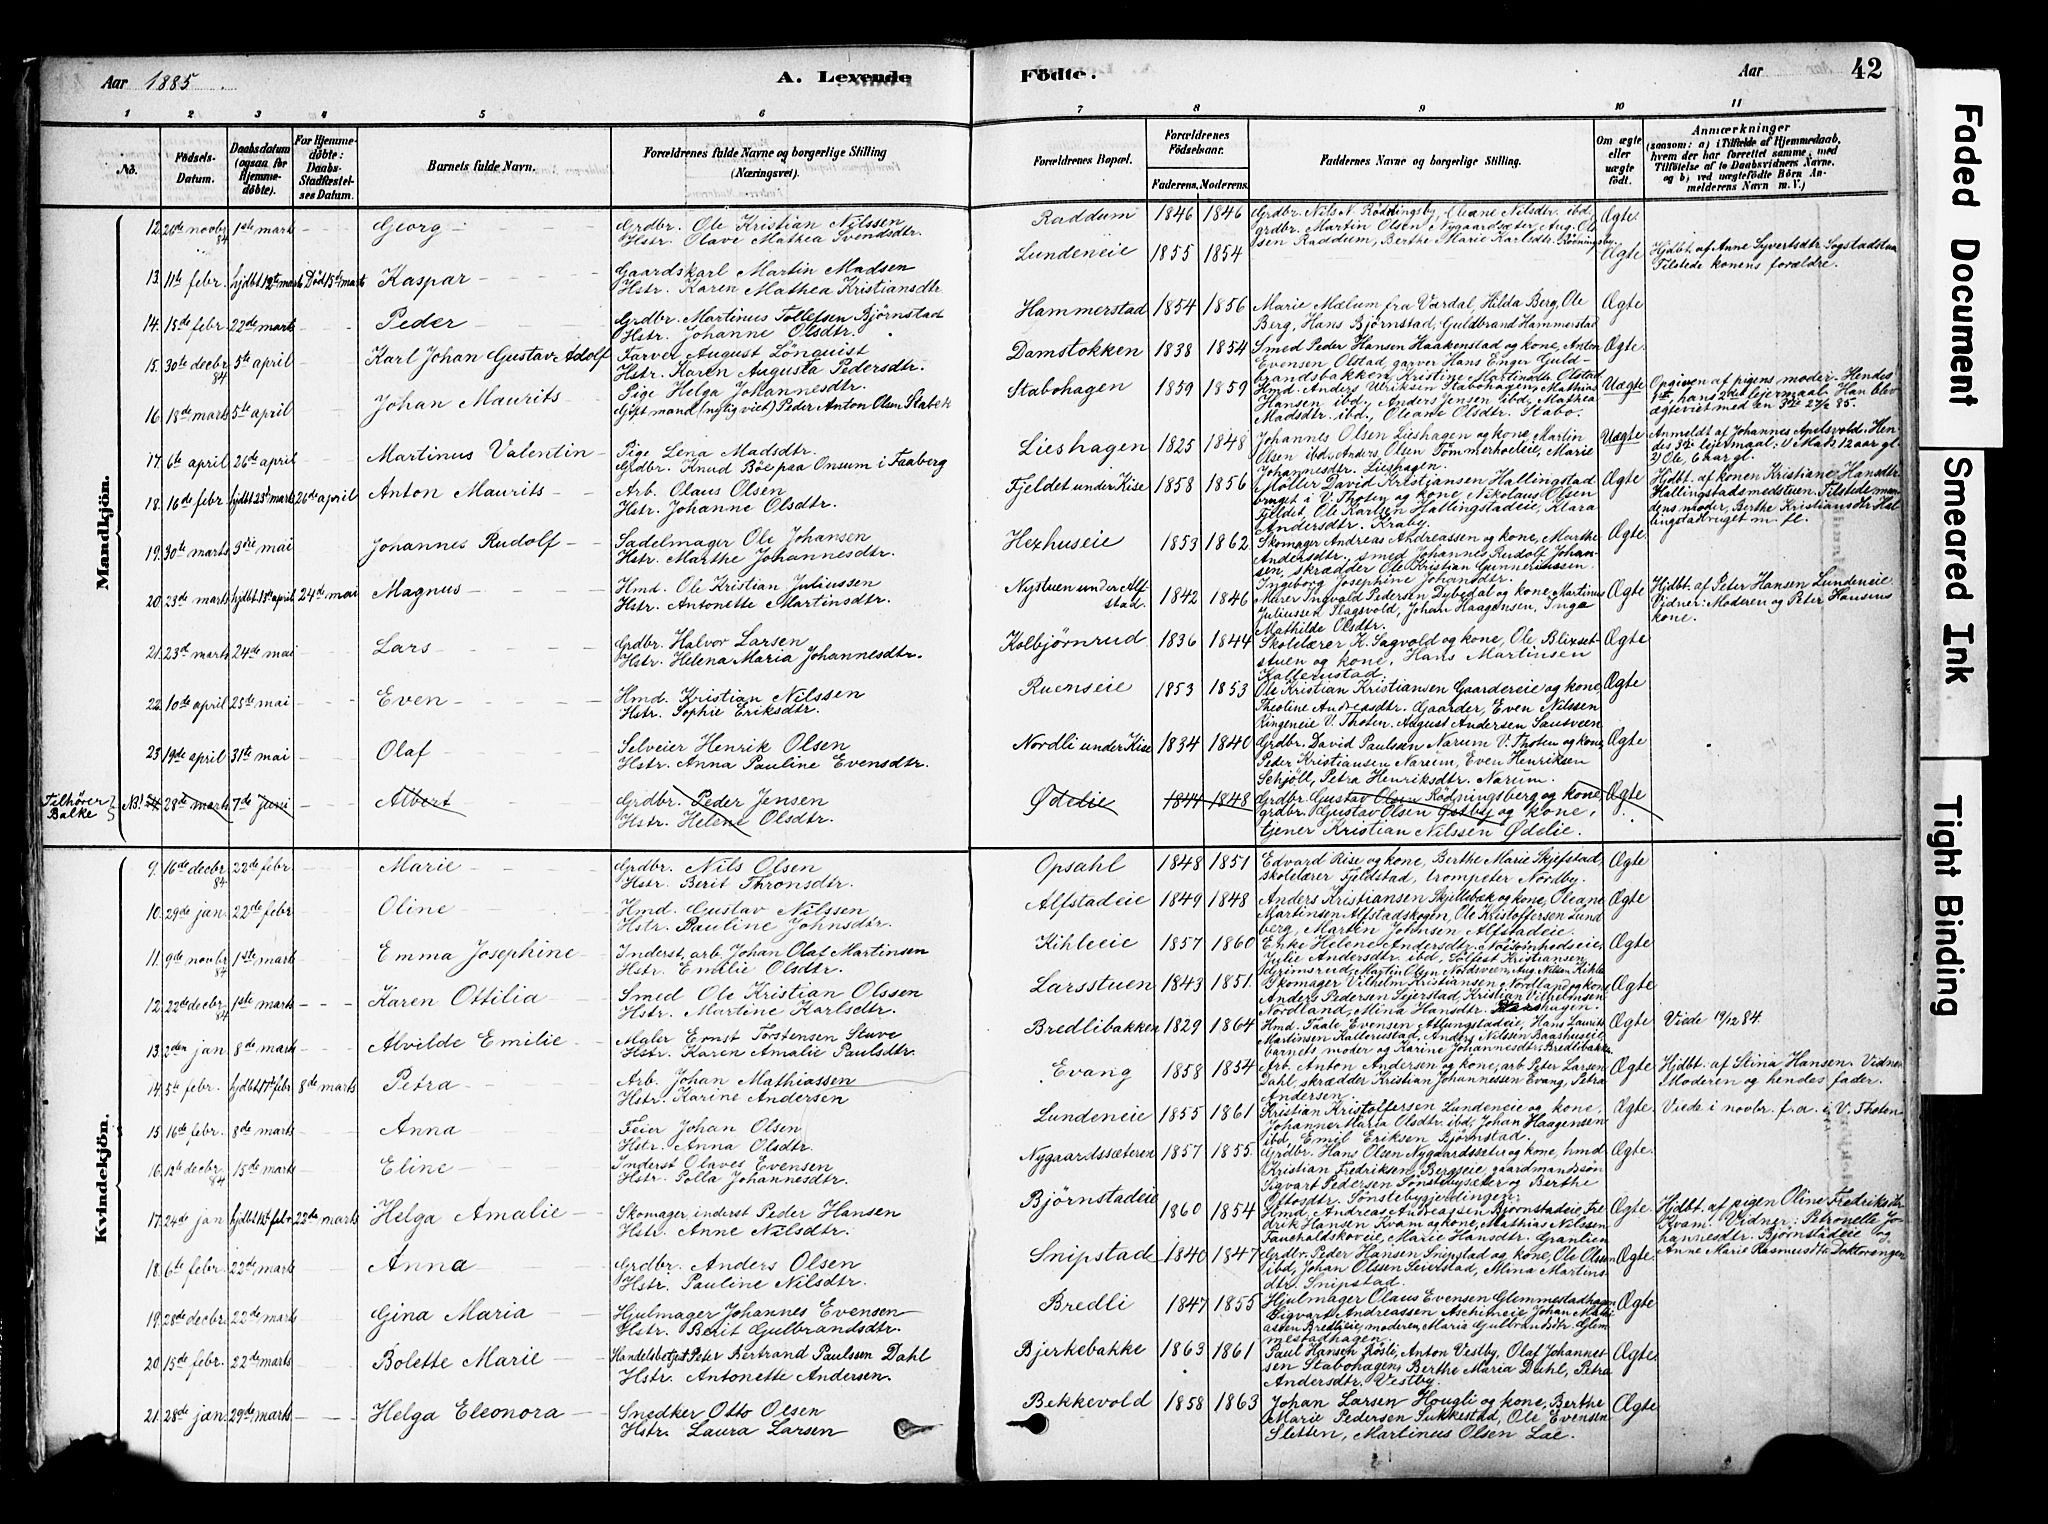 Aar 1885.
A. Levende
Födte.
Aar
42
1 2 3 4 5 6 7 8 9 10 11
No.
Födsels-Datum.
Daabsdatum (ogsaa for Hjemmedöbte).
For Hjemmedöbte: Daabs-Stadfæstelses Datum.
Barnets fulde Navn.
Forældrenes fulde Navne og borgerlige Stilling (Næringsvei).
Forældrenes Bopæl.
Forældrenes Födselsaar.
Faderens. Moderens.
Faddernes Navne og borgerlige Stilling.
Om ægte eller uægte födt.
Anmærkninger
(saasom: a) i Tilfælde af Hjemmedaab, hvem der har forrettet samme, med Tilföielse af to Daabsvidners Navne, og b) ved uægtefödte Börn Anmelderens Navn m. V.)
Mandkjön.
12. novbr 84 1ste marts Georg Grdbr. Ole Kristian Nilssen
Hstr. Olave Mathea Svendsdtr.
Raddum 1846 1846 Grdbr. Nils N. Røddingsby, Oleane Nilsdtr. ibd,
grdbr. Martin Olsen Nygaardsæter, Aug. Ol-
sen Raddum, Berthe Marie Karlsdtr. Rødningsby. Ægte
13. 11te febr. hjdbt 12te marts Död 15de marts Kaspar Gaardskarl Martin Madsen
Hstr. Karen Mathea Kristiansdtr.
Lundeneie 1855 1854 Ægte Hjdbt. af Anne Syvertsdtr. Sogstadstuen
Tilstede konens forældre.
14. 15de febr 22de marts Peder Grdbr. Martinus Tollefsen Bjørnstad
Hstr. Johanne Olsdtr.
Hammerstad 1854 1856 Marie Mælum fra Vardal, Hilda Berg, Ole
Berg, Hans Bjørnstad, Guldbrand Hammerstad Ægte
15. 30te decbr 84 5te april Karl Johan Gustav Adolf Farver August Lönquist
Hstr. Karen Augusta Pedersdtr.
Damstokken 1838 1854 Smed Peder Hansen Haakenstad og kone, Anton
Evensen Olstad, garver Hans Enger Guld-
brandsbakken, Kristine Martinsdtr Olstad Ægte
16 18de marts 5te april Johan Maurits Pige Helga Johannesdtr.
Gift mand (nylig viet) Peder Anton Olsen Stabek
Stabohagen 1859 1859 Hmd. Anders Ulriksen Stabohagen, Mathias
Hansen ibd., Anders Jensen ibd, Mathea
Madsdtr. ibd., Oleane Olsdtr. Stabo. Uægte Opgiven af pigens moder. Hendes
1ste, hans 2det leiermaal. Han blev
ægteviet med en 3die 27/2 85.
17. 6te april 26de april Martinus Valentin Pige Lena Madsdtr.
Grdbr. Knud Böe paa Onsum i Faaberg
Lieshagen 1825 1848 Johannes Olsen Lieshagen og kone, Martin
Olsen ibd, Anders Olsen Tömmerholeie, Marie
Johannesdtr. Lieshagen. Uægte Anmeldt af Johannes Apelsvold. Hen-
des 3die leiermaal: 1) Mads 12 aar gl.
2) Ole, 6 aar gl.
18. 16de febr hjdbt 23de marts 26de april Anton Maurits Arb. Olaus Olsen
Hstr. Johanne Olsdtr.
Fjeldet under Kise 1858 1856 Möller David Kristjansen Hallingstad
bruget i V. Thoten og kone, Nikolaus Olsen
Fjeldet, Ole Karlsen Hallingstadeie, Klara
Andersdtr. Kraby. Ægte Hjdbt. af konen Kristiane Hansdtr.
Hallingstadsmedstuen. Tilstede man-
dens moder, Berthe Kristiansdtr Hal-
lingstadbruget m. fl.
19. 30te marts 3die mai Johannes Rudolf Sadelmager Ole Johansen
Hstr. Marthe Johannesdtr.
Hexhuseie 1853 1862 Skomager Andreas Andreassen og kone, Marthe
Andersdtr., smed Johannes Rudolf Johan-
sen, skrædder Ole Kristian Gunneriussen.
Ingeborg Josephine Johansdtr. Ægte
20. 23de marts hjdbt april 24de mai Magnus Hmd. Ole Kristian Juliussen
Hstr. Antonette Martinsdtr.
Nystuen under Alf
stad. 1842 1846 Murer Ingvald Pedersen Dybedal og kone, Martinus
Juliussen Slagsvold, Johan Haagensen, Inga
Mathilde Olsdtr. Ægte Hjdbt. af Peter Hansen Lundeneie
Vidner: Moderen og Peter Hansens
kone.
21. 23de marts 24de mai Lars Grdbr. Halvor Larsen
Hstr. Helena Maria Johannesdtr.
Kolbjørnrud 1836 1844 Skolelærer K. Sagvold og kone, Ole Blixet-
stuen og kone, Hans Martinsen
Kallerustad. Ægte
22. 10de april 25de mai Even Hmd. Kristian Nilssen
Hstr. Sophie Eriksdtr.
Ruenseie 1853 1853 Ole Kristian Kristiansen Gaardereie og kone,
Theoline Andreasdtr. Gaarder, Even Nilssen
Ringeneie V. Thoten, August Andersen Sausveen Ægte
23 19de april 31te mai Olaf Selveier Henrik Olsen
Hstr. Anna Pauline Evensdtr.
Nordli under Kise 1834 1840 Grdbr. David Paulsen Narum V. Thoten og kone,
Peder Kristiansen Narum, Even Henriksen
Schjöll, Petra Henriksdtr. Narum. Ægte
Tilhører
Balke NB! 24 28de marts 7de juni Albert Grdbr. Peder Jensen
Hstr. Helene Olsdtr.
Ødelie 1844 1848 Grdbr. Gustav Olsen Rødningsberg og kone,
grdbr. Gustav Olsen Østby og kone,
tjener Kristian Nilssen Ødelie. Ægte
Kvindekjön.
9. 16de decbr 84 22de febr. Marie Grdbr. Nils Olsen
Hstr. Berit Thronsdtr.
Opsahl 1848 1851 Edvard Rise og kone, Berthe Marie Skjefstad,
skolelærer Fjeldstad, trompeter Nordby. Ægte
10. 29de jan. 22de febr Oline Hmd. Gustav Nilssen
Hstr. Pauline Johnsdtr.
Alfstadeie 1849 1848 Anders Kristiansen Skjellebæk og kone, Oleane
Martinsen Alfstadskogen, Ole Kristoffersen Lund
berg, Martin Johnsen Alfstadeie. Ægte
11. 9de novbr 84 1ste marts Emma Josephine Inderst. arb. Johan Olaf Martinsen
Hstr. Emilie Olsdtr.
Kihleeie 1857 1860 Enke Helene Andersdtr.
Julie Andersdtr. ibd, Sölfest Kristiansen
Grimsrud, Martin Olsen Nordsveen, Aug. Nilsen Kihle Ægte
12. 22de decbr 84 1ste marts Karen Ottilia Smed Ole Kristian Olssen
Hstr. Martine Karlsdtr.
Larsstuen 1843 1851. Skomager Vilhelm Kristiansen Nordland og kone
Anders Pedersen Seierstad, Kristian Vilhelmsen
Nordland, Mina Hansdtr. Ægte
13. 2den jan 8de marts Alvilde Emilie Maler Ernst Torstensen Stuve
Hstr. Karen Amalie Paulsdtr.
Bredlibakken 1829 1864 Hmd. Taale Evensen Atlungstadeie, Hans Laurits
Martinsen Kallerustad, Anders Nilssen Baashuseie,
barnets moder og Karine Johannesdtr. Bredlibakke Ægte Viede 19/12 84.
14. 5te febr. hjdbt febr 8de marts Petra Arb. Johan Mathiassen
Hstr. Karine Andersen
Evang 1858 1854 Arb. Anton Andersen og kone, arb Peter Larsen
Dahl, skrædder Kristian Johannessen Evang, Petra
Andersen. Ægte Hjdbt. af Stina Hansen. Vidner
Moderen og hendes fader.
15. 16de febr. 8de marts Anna Feier Johan Olsen
Hstr. Anna Olsdtr.
Lundeneie 1855 1861 Kristian Kristoffersen Lundeneie og kone,
Johanne Maria Olsdtr. ibd, Johan Haagensen
ibd, Emil Eriksen Bjørnstad. Ægte. Viede i novbr. f. a. i V. Thoten
16. 12te decbr 84 15de marts Eline Inderst Olaves Evensen
Hstr. Polla Johannesdtr.
Nygaardssæteren 1857 1855 Grdbr. Hans Olsen Nygaardsseter og kone, hmd.
Kristian Fredriksen, Bergseie, gaardmandssön
Sigvart Pedersen Sønstebysæter og Berthe
Ottosdtr. Sønstebygjerdingen. Ægte.
17. 24de jan hjdbt febr 22de marts Helga Amalie Skomager, inderst Peder Hansen
Hstr. Anne Nilsdtr.
Bjørnstadeie 1860 1854 Hmd. Andreas Andreassen Bjørnstadeie, Fre-
drik Hansen Kvam og kone, Mathias Nilssen
Faucholdskoveie, Marie Hansdtr. Granlien Ægte. Hjdbt. af pigen Oline Fredriksdtr
Kvam. Vidner: Petronelle Jo-
hannesdtr. Bjørnstadeie og
Anne Marie Rasmusdtr. Doktorengen
18. 6te febr. 22de marts Anna Grdbr. Anders Olsen
Hstr. Pauline Nilsdtr.
Snipstad 1840 1847 Grdbr. Peder Hansen Snipstad og kone, Ole Olsen
ibd, Johan Olssen Seierstad, Mina Martins-
dtr. Snipstad. Ægte.
19. 28de decbr. 22de marts Gina Maria Hjulmager Johannes Evensen
Hstr. Berit Gulbrandsdtr.
Bredli 1847 1855 Hjulmager Olaus Evensen Glemmestadhagen
Sigvart Andreassen Aschimeie, Johan Mathi-
assen Bredlieie, moderen, Maria Gulbrandsdtr. Glem-
mestadhagen. Ægte
20. 15de febr. 22de marts Bolette Marie Handelsbetjent Peter Bertrand Paulssen Dahl
Hstr. Antonette Andersen.
Bjerkebakke 1863 1861 Paul Hansen Røsli, Anton Vestby, Olaf Johannes-
sen Stabohagen, Berthe Maria Dahl, Petra
Andersdtr. Vestby. Ægte.
21. 28de jan. 29de marts Helga Eleonora Snedker Otto Olsen
Hstr. Laura Larsen
Bekkevold 1858 1863 Johan Larsen Hougli og kone, Berthe
Marie Pedersen Sukkestad, Ole Evensen
Sletten, Martinus Olsen Lae. Ægte
Faded Document
Smeared Ink
Tight Binding